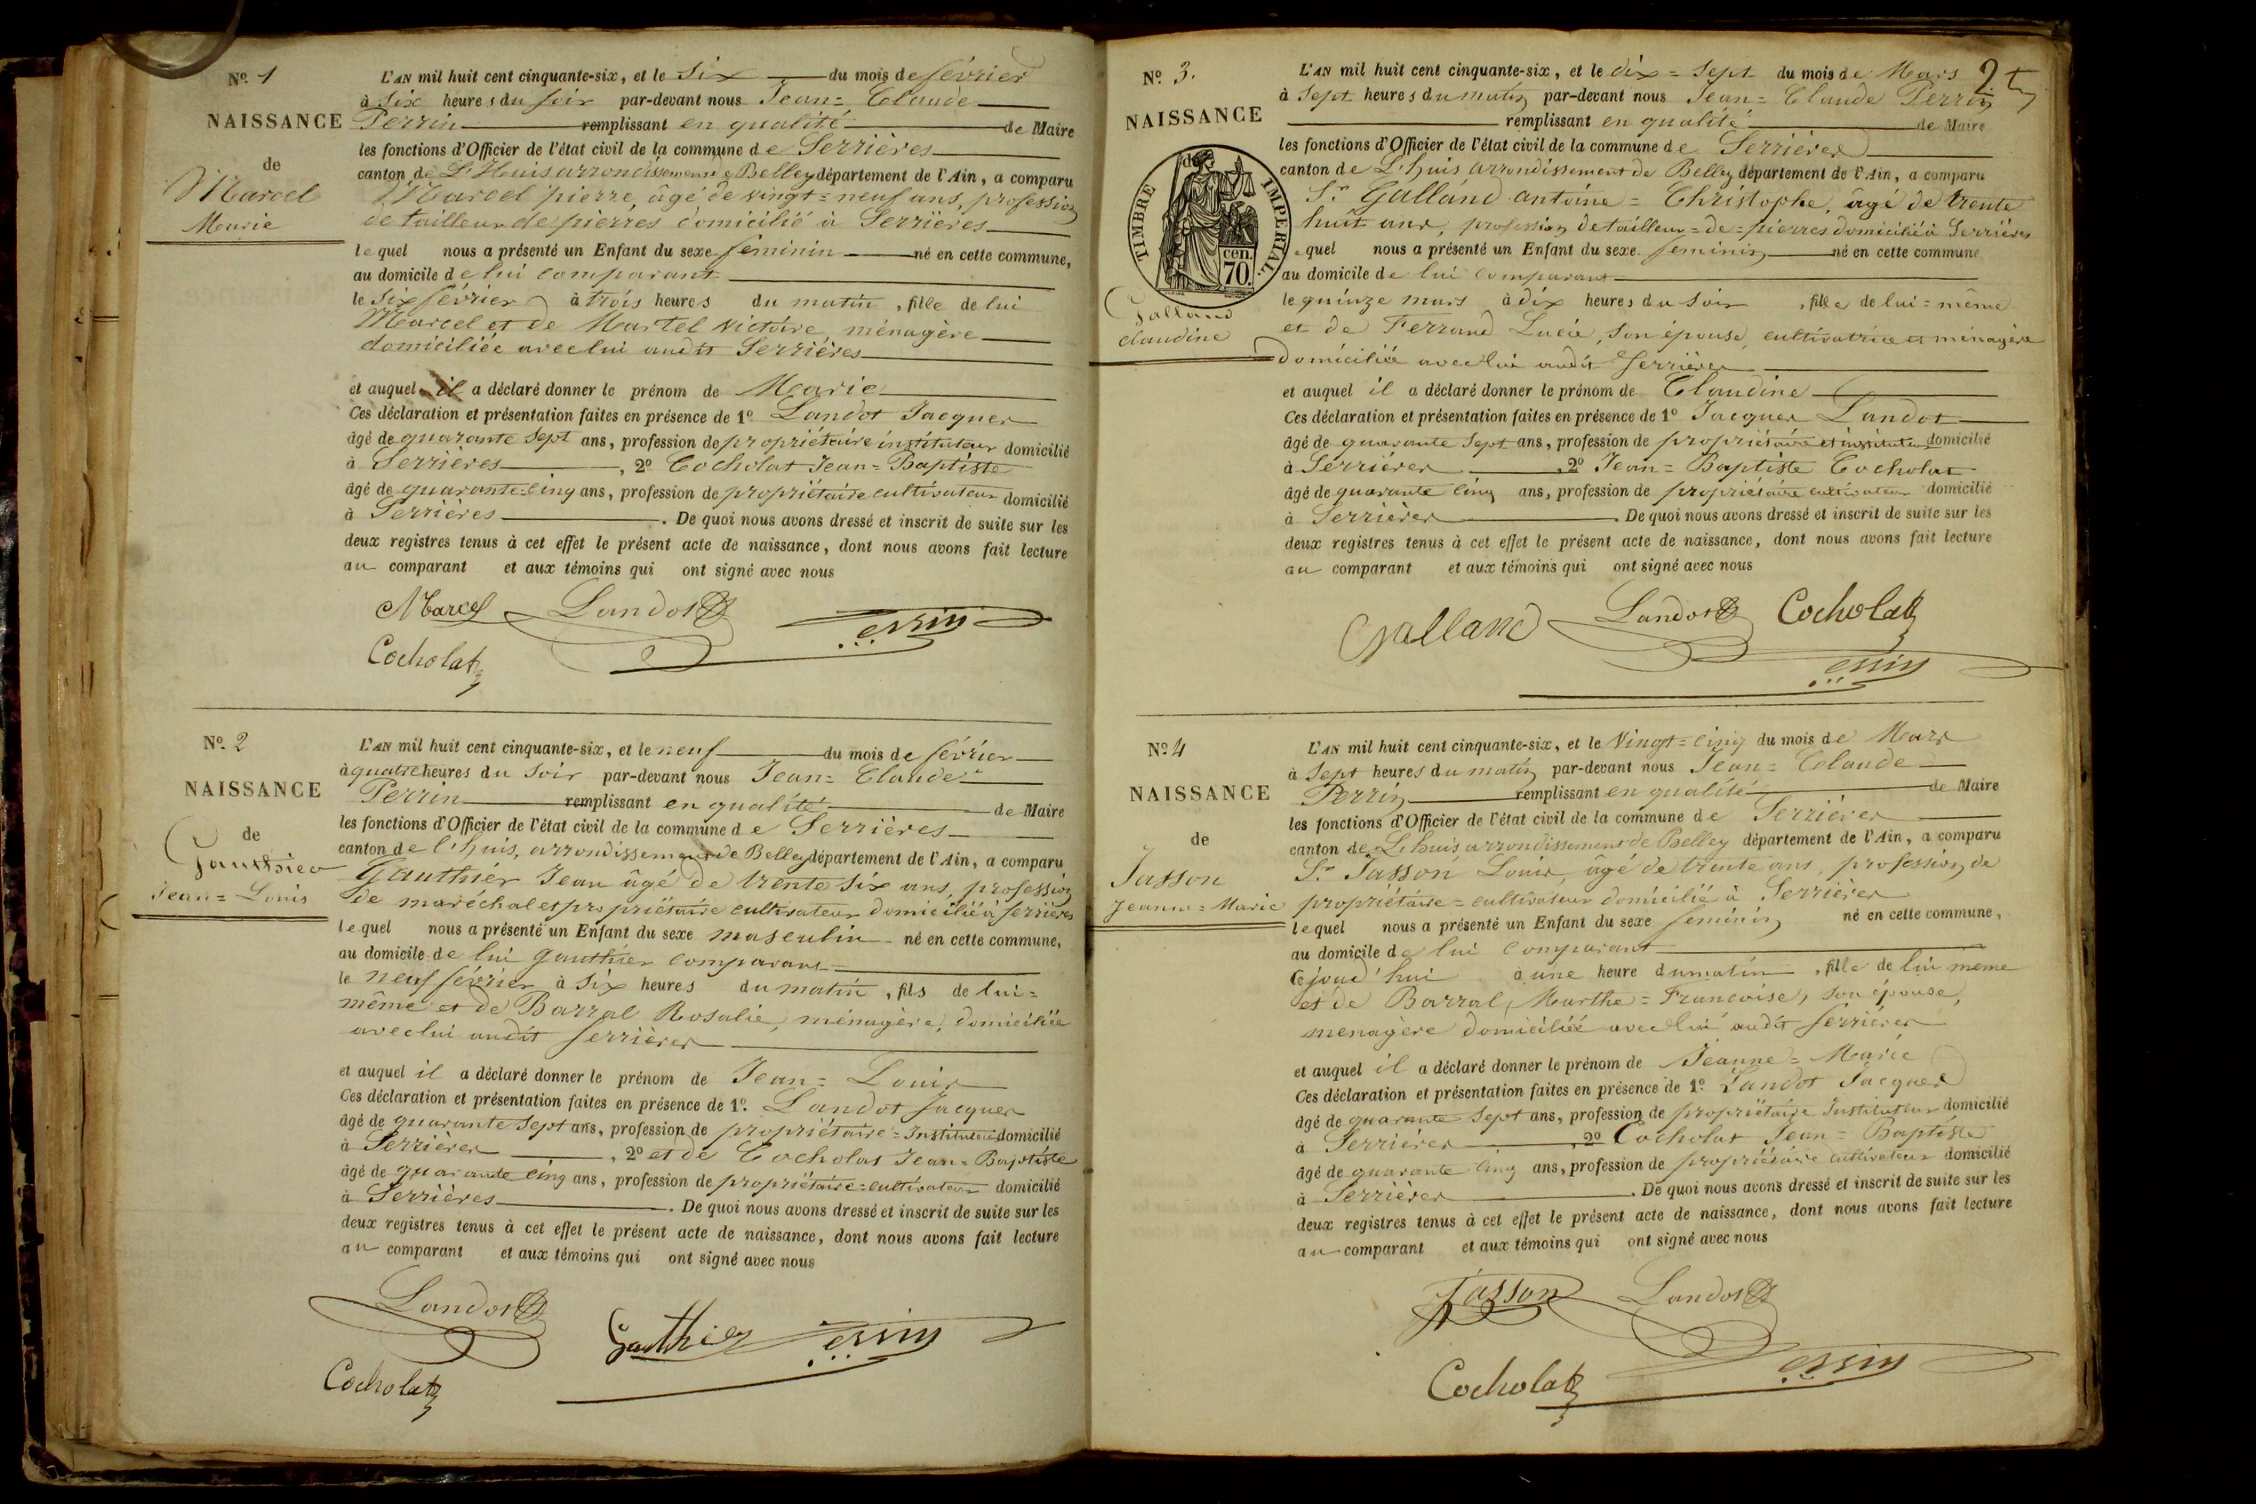 Nº 1
NAISSANCE
de
Marcel
Marie
L'AN mil huit cent cinquante-six, et le six du mois de février
à six heures du soir par-devant nous Jean=Claude
Perrin remplissant en qualité de Maire
les fonctions d'Officier de l'état civil de la commune de Serrières
canton de L'Huis arrondissement de Belley département de l'Ain, a comparu
Marcel pierre, âgé de vingt=neuf ans, profession
de tailleur de pierres domicilié à Serrières
lequel nous a présenté un Enfant du sexe féminin né en cette commune,
au domicile de lui comparant
le six février à trois heures du matin, fille de lui
Marcel et de Martel victoire, ménagère
domiciliée avec lui audit Serrières
et auquel il a déclaré donner le prénom de Marie
Ces déclaration et présentation faites en présence de 1º Landot Jacques
âgé de quarante sept ans, profession de propriétaire instituteur domicilié
à Serrières, 2º Cocholat Jean=Baptiste
âgé de quarante=cinq ans, profession de propriétaire cultivateur domicilié
à Serrières. De quoi nous avons dressé et inscrit de suite sur les
deux registres tenus à cet effet le présent acte de naissance, dont nous avons fait lecture
au comparant et aux témoins qui ont signé avec nous
Marcel Landot Perrin
Cocholat
Nº 2
NAISSANCE
de
Gauthier
Jean=Louis
L'AN mil huit cent cinquante-six, et le neuf du mois de février
à quatre heures du soir par-devant nous Jean=Claude
Perrin remplissant en qualité de Maire
les fonctions d'Officier de l'état civil de la commune de Serrières
canton de l'huis, arrondissement de Belley département de l'Ain, a comparu
Gauthier Jean âgé de trente six ans, profession
de maréchal et propriétaire cultivateur domicilié à Serrières
lequel nous a présenté un Enfant du sexe masculin né en cette commune,
au domicile de lui gauthier comparant
le neuf février à six heures du matin, fils de lui=
même et de Barral Rosalie, ménagère, domiciliée
avec lui audit Serrières
et auquel il a déclaré donner le prénom de Jean=Louis
Ces déclaration et présentation faites en présence de 1º. Landot Jacques
âgé de quarante sept ans, profession de propriétaire=Instituteur domicilié
à Serrières, 2º et de Cocholat Jean=Baptiste
âgé de quarante cinq ans, profession de propriétaire=cultivateur domicilié
à Serrières. De quoi nous avons dressé et inscrit de suite sur les
deux registres tenus à cet effet le présent acte de naissance, dont nous avons fait lecture
au comparant et aux témoins qui ont signé avec nous
Landot
Gauthier Perrin
Cocholat
2
Nº 3.
NAISSANCE
TIMBRE IMPERIAL.
cen.
70.
Galland
claudine
L'AN mil huit cent cinquante-six, et le dix=sept du mois de Mars
à sept heures du matin par-devant nous Jean=Claude Perrin
remplissant en qualité de Maire
les fonctions d'Officier de l'état civil de la commune de Serrières
canton de L'huis arrondissement de Belley département de l'Ain, a comparu
Sr. Galland antoine=Christophe, âgé de trente
huit ans, profession de tailleur=de=pierres domicilié à Serrières
lequel nous a présenté un Enfant du sexe féminin né en cette commune
au domicile de lui comparant
le quinze mars à dix heures du soir, fille de lui=même
et de Ferrand Lucie, son épouse, cultivatrice et ménagère
domiciliée avec lui audit Serrières
et auquel il a déclaré donner le prénom de Claudine
Ces déclaration et présentation faites en présence de 1º Jacques Landot
âgé de quarante sept ans, profession de propriétaire et instituteur domicilié
à Serrières, 2º Jean=Baptiste Cocholat
âgé de quarante cinq ans, profession de propriétaire cultivateur domicilié
à Serrières. De quoi nous avons dressé et inscrit de suite sur les
deux registres tenus à cet effet le présent acte de naissance, dont nous avons fait lecture
au comparant et aux témoins qui ont signé avec nous
Galland Landot Cocholat
Perrin
Nº 4
NAISSANCE
de
Jasson
Jeanne=Marie
L'AN mil huit cent cinquante-six, et le Vingt=cinq du mois de Mars
à sept heures du matin par-devant nous Jean=Claude
Perrin remplissant en qualité de Maire
les fonctions d'Officier de l'état civil de la commune de Serrières
canton de L'huis arrondissement de Belley département de l'Ain, a comparu
Sr. Jasson Louis, âgé de trente ans, profession de
propriétaire=cultivateur domicilié à Serrières
lequel nous a présenté un Enfant du sexe féminin né en cette commune,
au domicile de lui comparant
Ce joud'hui à une heure du matin, fille de lui meme
et de Barral, Marthe=Francoise, son épouse,
menagère domiciliée avec lui audit Serrières
et auquel il a déclaré donner le prénom de Jeanne=Marie
Ces déclaration et présentation faites en présence de 1º Landot Jacques
âgé de quarante sept ans, profession de propriétaire Instituteur domicilié
à Serrières, 2º Cocholat Jean=Baptiste
âgé de quarante cinq ans, profession de propriétaire cultivateur domicilié
à Serrières. De quoi nous avons dressé et inscrit de suite sur les
deux registres tenus à cet effet le présent acte de naissance, dont nous avons fait lecture
au comparant et aux témoins qui ont signé avec nous
Jasson Landot
Cocholat Perrin